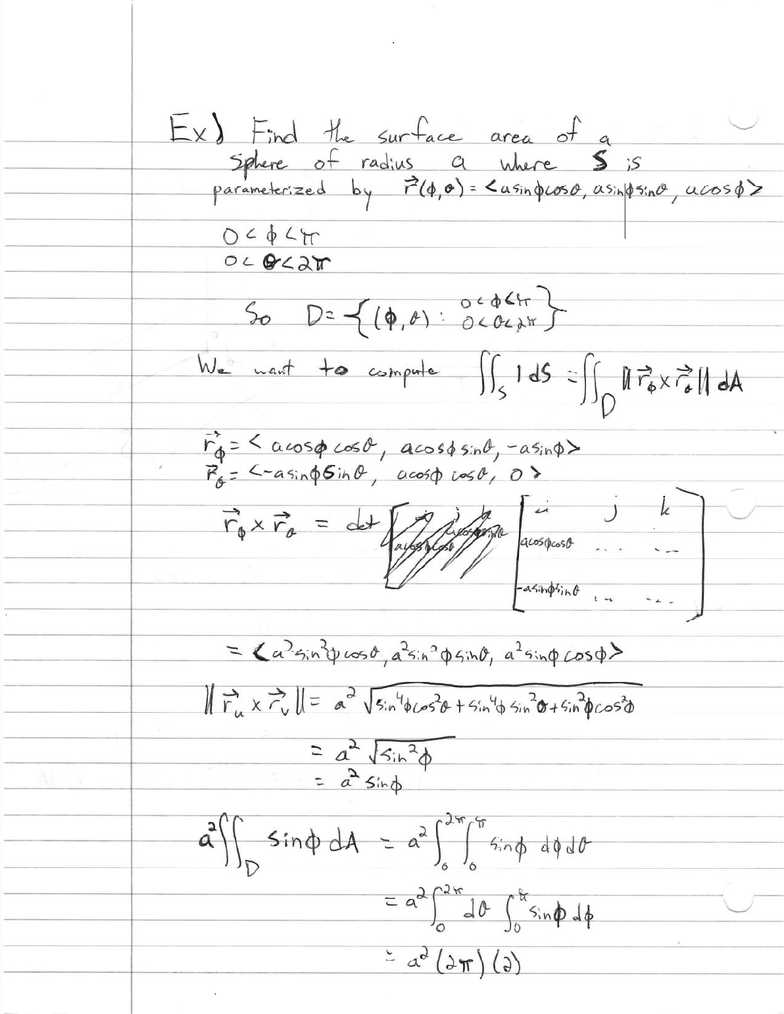 Ex) Find the surface area of a
sphere of radius a where S is
parameterized by r⃗(ϕ,θ) = <asinϕcosθ, asinϕsinθ, acosϕ>
0<ϕ<π
0<θ<2π
So D = {(ϕ,θ) : 0<ϕ<π 0<θ<2π}
We want to compute ∬_S 1 dS = ∬_D ‖r⃗_ϕ × r⃗_θ‖ dA
r⃗_ϕ = <acosϕcosθ, acosϕsinθ, -asinϕ>
r⃗_θ = <-asinϕsinθ, acosϕcosθ, 0>
r⃗_ϕ × r⃗_θ = det [ i j k
acosϕcosθ ... ...
-asinϕsinθ ... ... ]
= <a²sin²ϕcosθ, a²sin²ϕsinθ, a²sinϕcosϕ>
‖r⃗_u × r⃗_v‖ = a² √(sin⁴ϕcos²θ + sin⁴ϕsin²θ + sin²ϕcos²ϕ)
= a² √(sin²ϕ)
= a² sinϕ
a² ∬_D sinϕ dA = a² ∫_0^2π ∫_0^π sinϕ dϕdθ
= a² ∫_0^2π dθ ∫_0^π sinϕ dϕ
= a² (2π)(2)